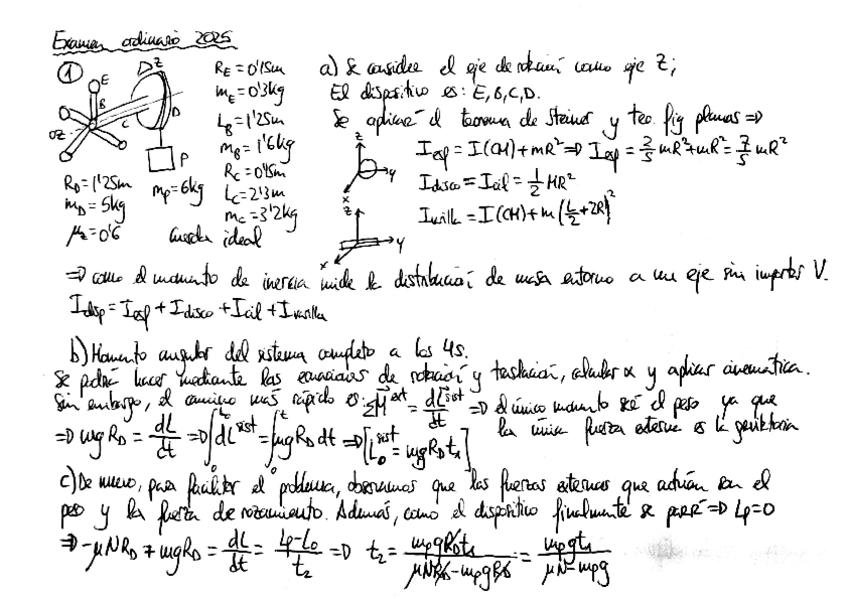 Examen ordinario 2025
① E Z B C D OZ P
R_E = 0'15m
m_E = 0'3kg
L_B = 1'25m
m_B = 1'6kg
R_C = 0'45m
L_C = 2'3m
m_C = 3'2kg
R_D = 1'25m
m_D = 5kg
μ_z = 0'6
m_P = 6kg
Cuerda ideal
a) Se considera el eje de rotación como eje Z;
El dispositivo es: E, B, C, D.
Se aplicará el teorema de Steiner y teo. fig planas ⇒
I_esf = I(CM) + mR² ⇒ I_esf = 2/5 mR² + mR² = 7/5 mR²
I_disco = I_cil = 1/2 MR²
I_varilla = I(CM) + m(L/2 + 2R)²
z y x
z y x
⇒ como el momento de inercia mide la distribución de masa entorno a un eje sin importar V.
I_disp = I_esf + I_disco + I_cil + I_varilla
b) Momento angular del sistema completo a los 4s.
Se podrá hacer mediante las ecuaciones de rotación y traslación, calcular α y aplicar cinemática.
Sin embargo, el camino más rápido es: ΣM^ext = dL^sist/dt ⇒ el único momento será el peso ya que
la única fuerza externa es la gravitatoria
⇒ mgR_D = dL/dt ⇒ ∫₀^L₀ dL^sist = ∫₀^t mgR_D dt ⇒ [L₀^sist = mgR_D t₁]
c) De nuevo, para facilitar el problema, observamos que las fuerzas externas que actúan son el
peso y la fuerza de rozamiento. Además, como el dispositivo finalmente se parará ⇒ L_f = 0
⇒ -μNR_D + mgR_D = dL/dt = (L_f - L₀)/t₂ ⇒ t₂ = m_P g R_D t₁/(μNR_D - m_P g R_D) = m_P g t₁/(μN - m_P g)